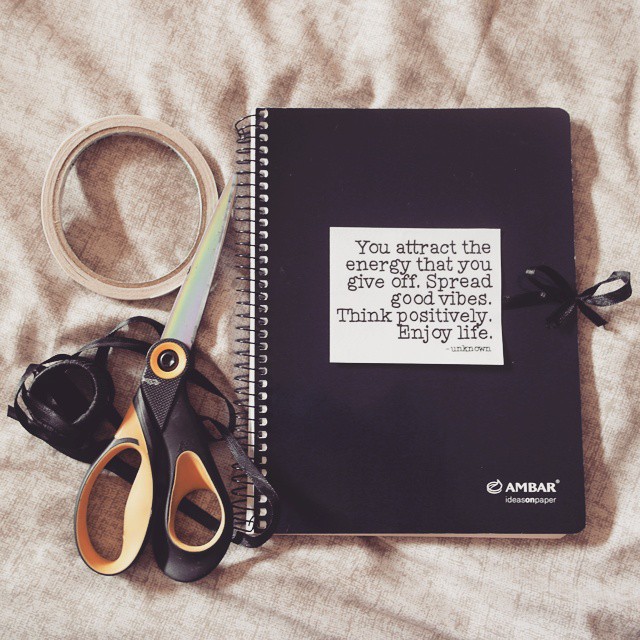 You attract the
energy that you
give off. Spread
good vibes.
Think positively.
Enjoy life.
-unknown
AMBAR®
ideasonpaper